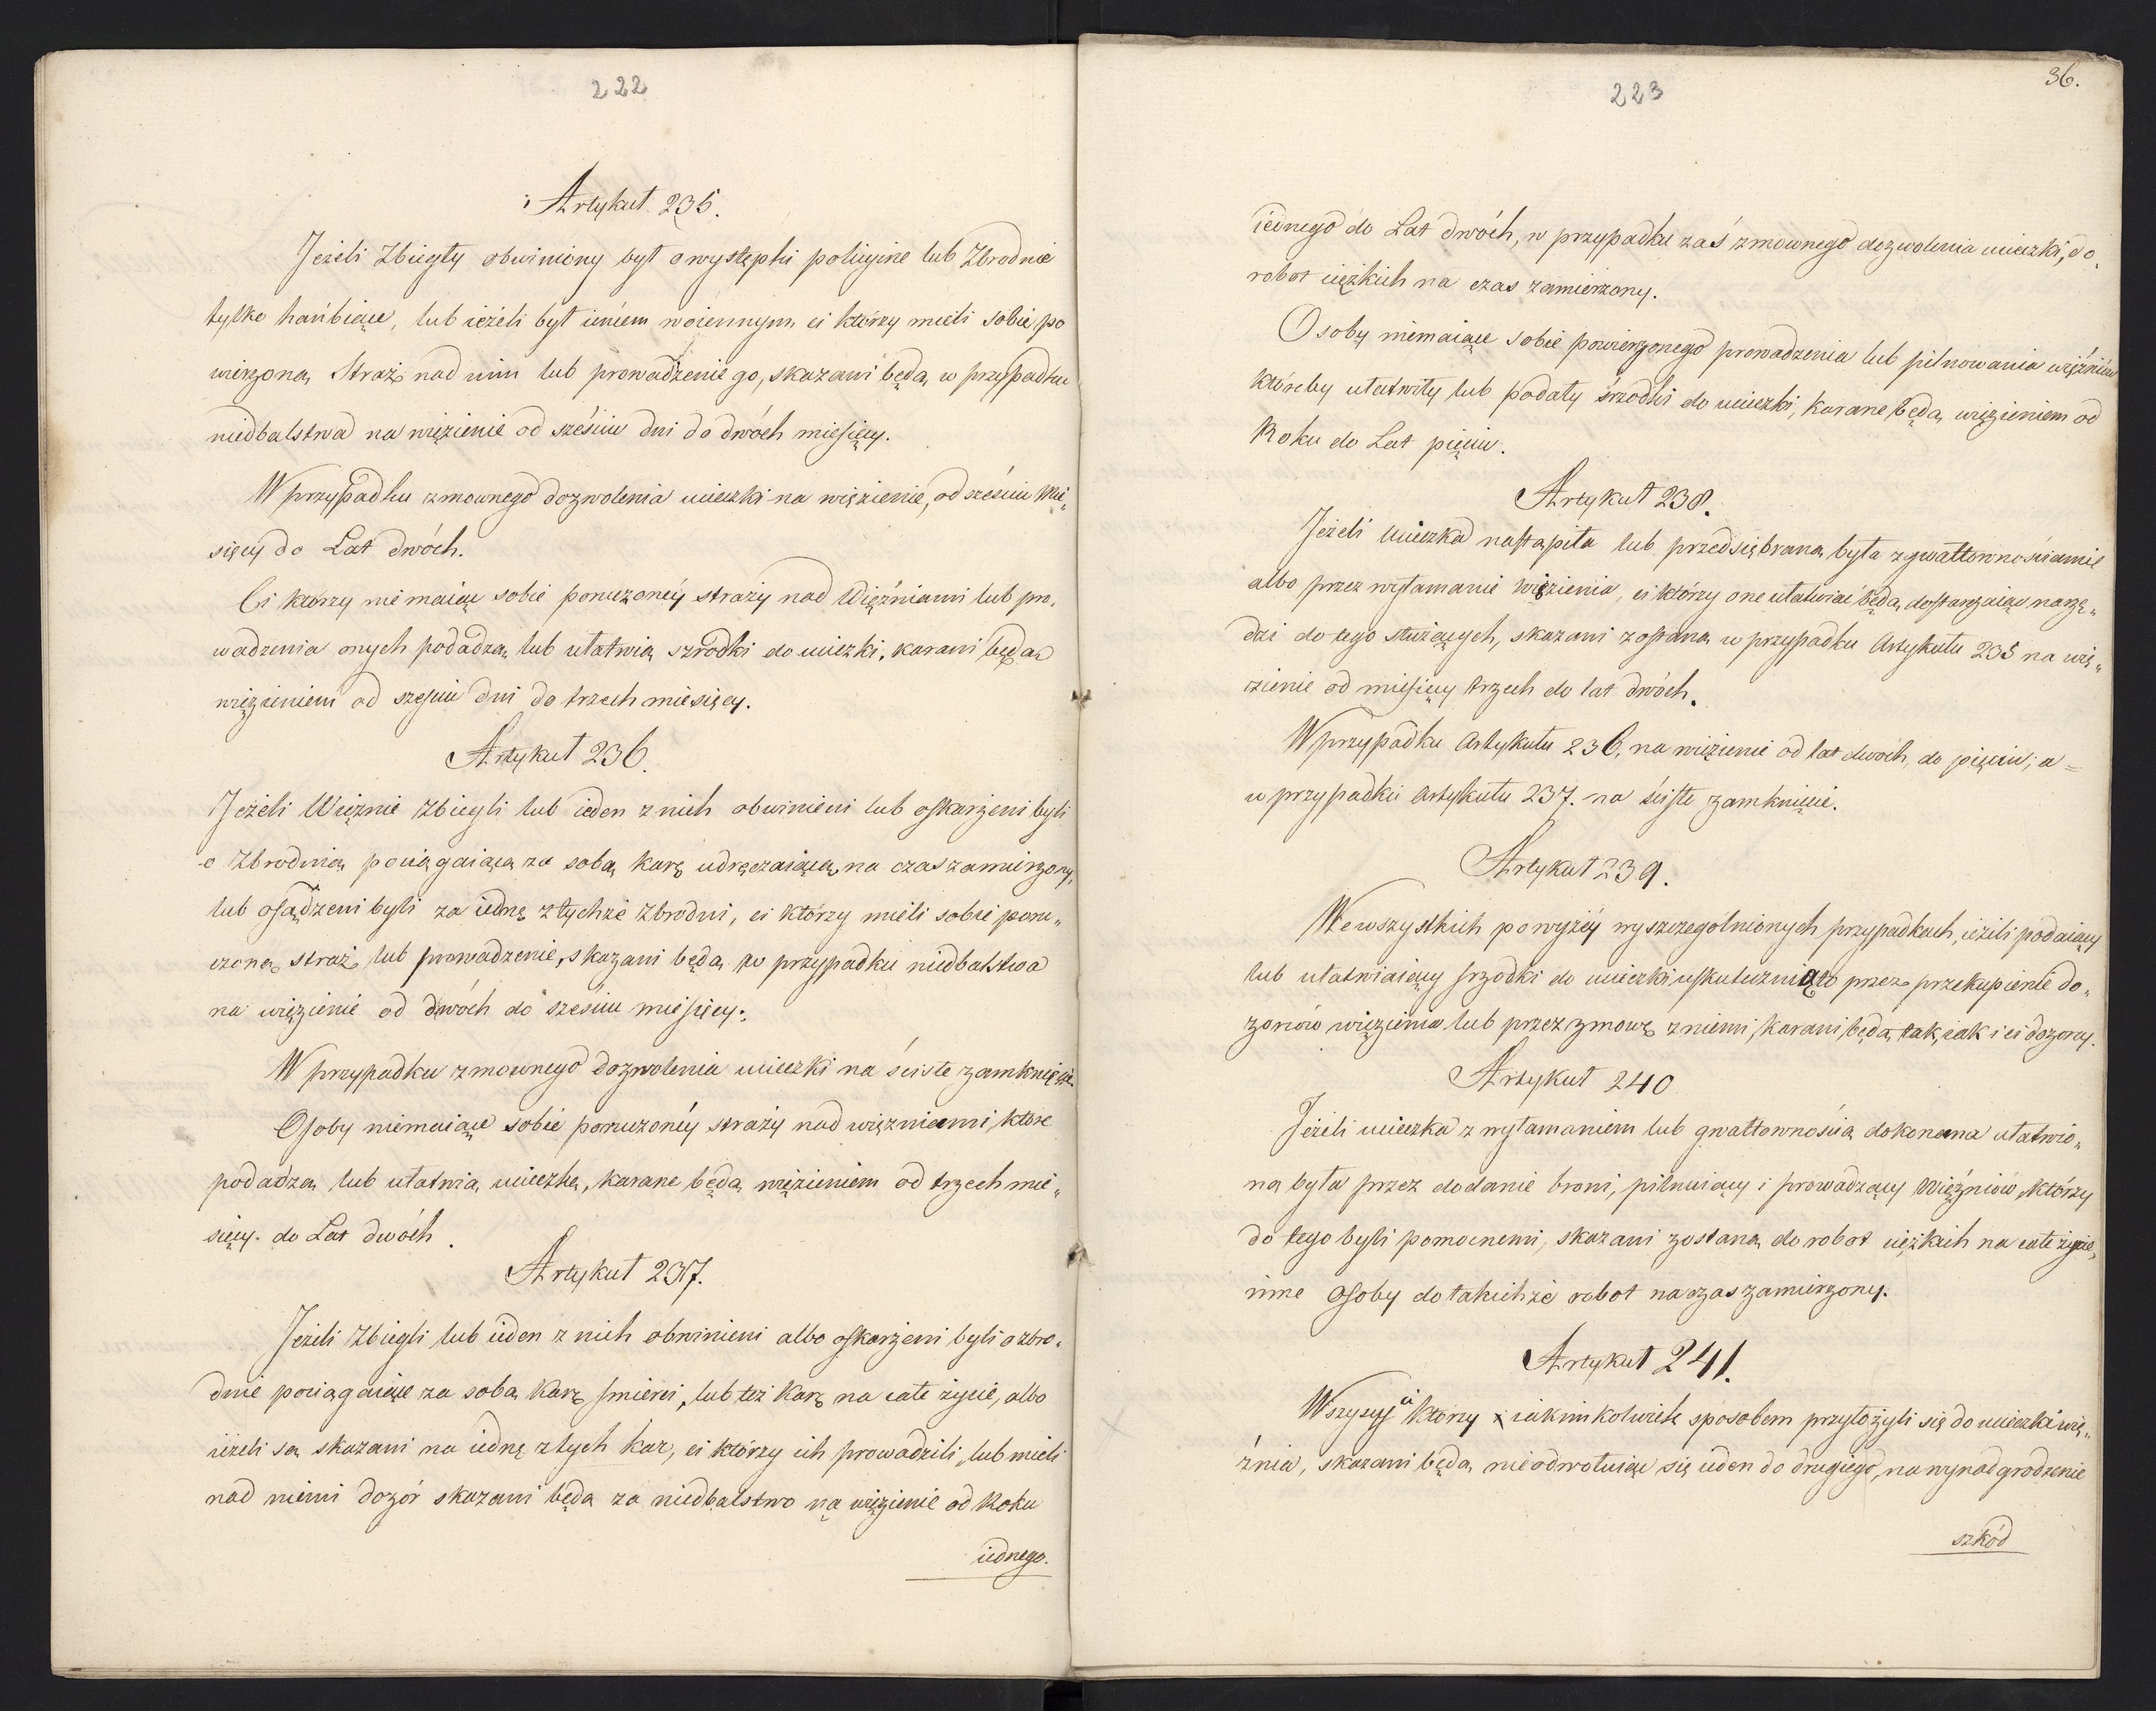 222
Artykuł 235.
Jeżeli Zbiegły obwiniony był o występki policyine lub Zbrodnie
tylko hańbiące, lub ieżeli był ieńcem woiennym, ci którzy mieli sobie po
wierzoną Straż nad nim lub prowadzenie go, skazani będą w przypadku
niedbalstwa na więzienie od sześciu dni do dwóch miesięcy.
W przypadku zmownego dozwolenia ucieczki na więzienie, od sześciu Mie„
sięcy do Lat dwóch.
Ci którzy nie maiąc sobie poruczoney straży nad Więźniami lub pro„
wadzenia onych podadzą lub ułatwią szrodki do ucieczki, karani będą
więzieniem od sześciu dni do trzech miesięcy.
Artykuł 236.
Jeżeli Więźnie zbiegli lub ieden z nich obwinieni lub oskarżeni byli
o Zbrodnią pociągaiącą za sobą karę udręczaiącą na czas zamierzony,
lub osądzeni byli za iedną z tychże Zbrodni, ci którzy mieli sobie poru„
czoną straż lub prowadzenie, skazani będą w przypadku niedbalstwa
na więzienie od dwóch do sześciu miesięcy.
W przypadku zmownego dozwolenia ucieczki na ściste zamknięcie.
Osoby niemaiące sobie poruczoney straży nad więzniami, które
podadzą lub ułatwią ucieczkę, karane będą więzieniem od trzech mie„
sięcy do Lat dwóch.
Artykuł 237.
Jeżeli Zbiegli lub ieden z nich obwinieni albo oskarżeni byli o zbro„
dnie pociągaiące za sobą Karę smierci, lub też Karę na całe życie, albo
ieżeli są skazani na iedną z tych kar, ci którzy ich prowadzili, lub mieli
nad niemi dozór skazani będą za niedbalstwo na więzienie od Roku
iednego.
36.
223
iednego do Lat dwóch, w przypadku zaś zmownego dozwolenia ucieczki, do
robot ciężkich na czas zamierzony.
Osoby niemaiące sobie powierzonego prowadzenia lub pilnowania więźniów
któreby ułatwiły lub podały śrzodki do ucieczki, karane będą więzieniem od
Roku do Lat pięciu.
Artykuł 238.
Jeżeli Ucieczka nastąpiła lub przedsiębraną była z gwałtownościami
albo przez wyłamanie więzienia, ci którzy one ułatwiać będą, dostarczaiąc narzę„
dzi do tego służących, skazani zostaną w przypadku Artykułu 235 na wię„
zienie od miesięcy trzech do lat dwóch.
W przypadku Artykułu 236, na więzienie od lat dwóch, do pięciu, a
w przypadku Artykułu 237. na ściste zamknięcie.
Artykuł 239.
We wszystkich powyżey wyszczegolnionych przypadkach, ieżeli podaiący
lub ułatwiaiący srzodki do ucieczki uskutecznią to przez przekupienie do„
zorców więzienia lub przez zmowę z niemi, karani będą tak, iak i ci dozorcy.
Artykuł 240
Jeżeli ucieczka z wyłamaniem lub gwałtownością dokonana ułatwio„
ną była przez dodanie broni, pilnuiący i prowadzący Więźniów, którzy
do tego byli pomocnemi, skazani zostaną do robot ciężkich na całe życie,
inne Osoby do takichże robot na czas zamierzony.
Artykuł 241.
Wszyscy ci Którzy iakimkolwiek sposobem przyłożyli się do ucieczki wię„
źnia, skazani będą, nieodwołuiąc się ieden do drugiego, na wynadgrodzenie
szkód